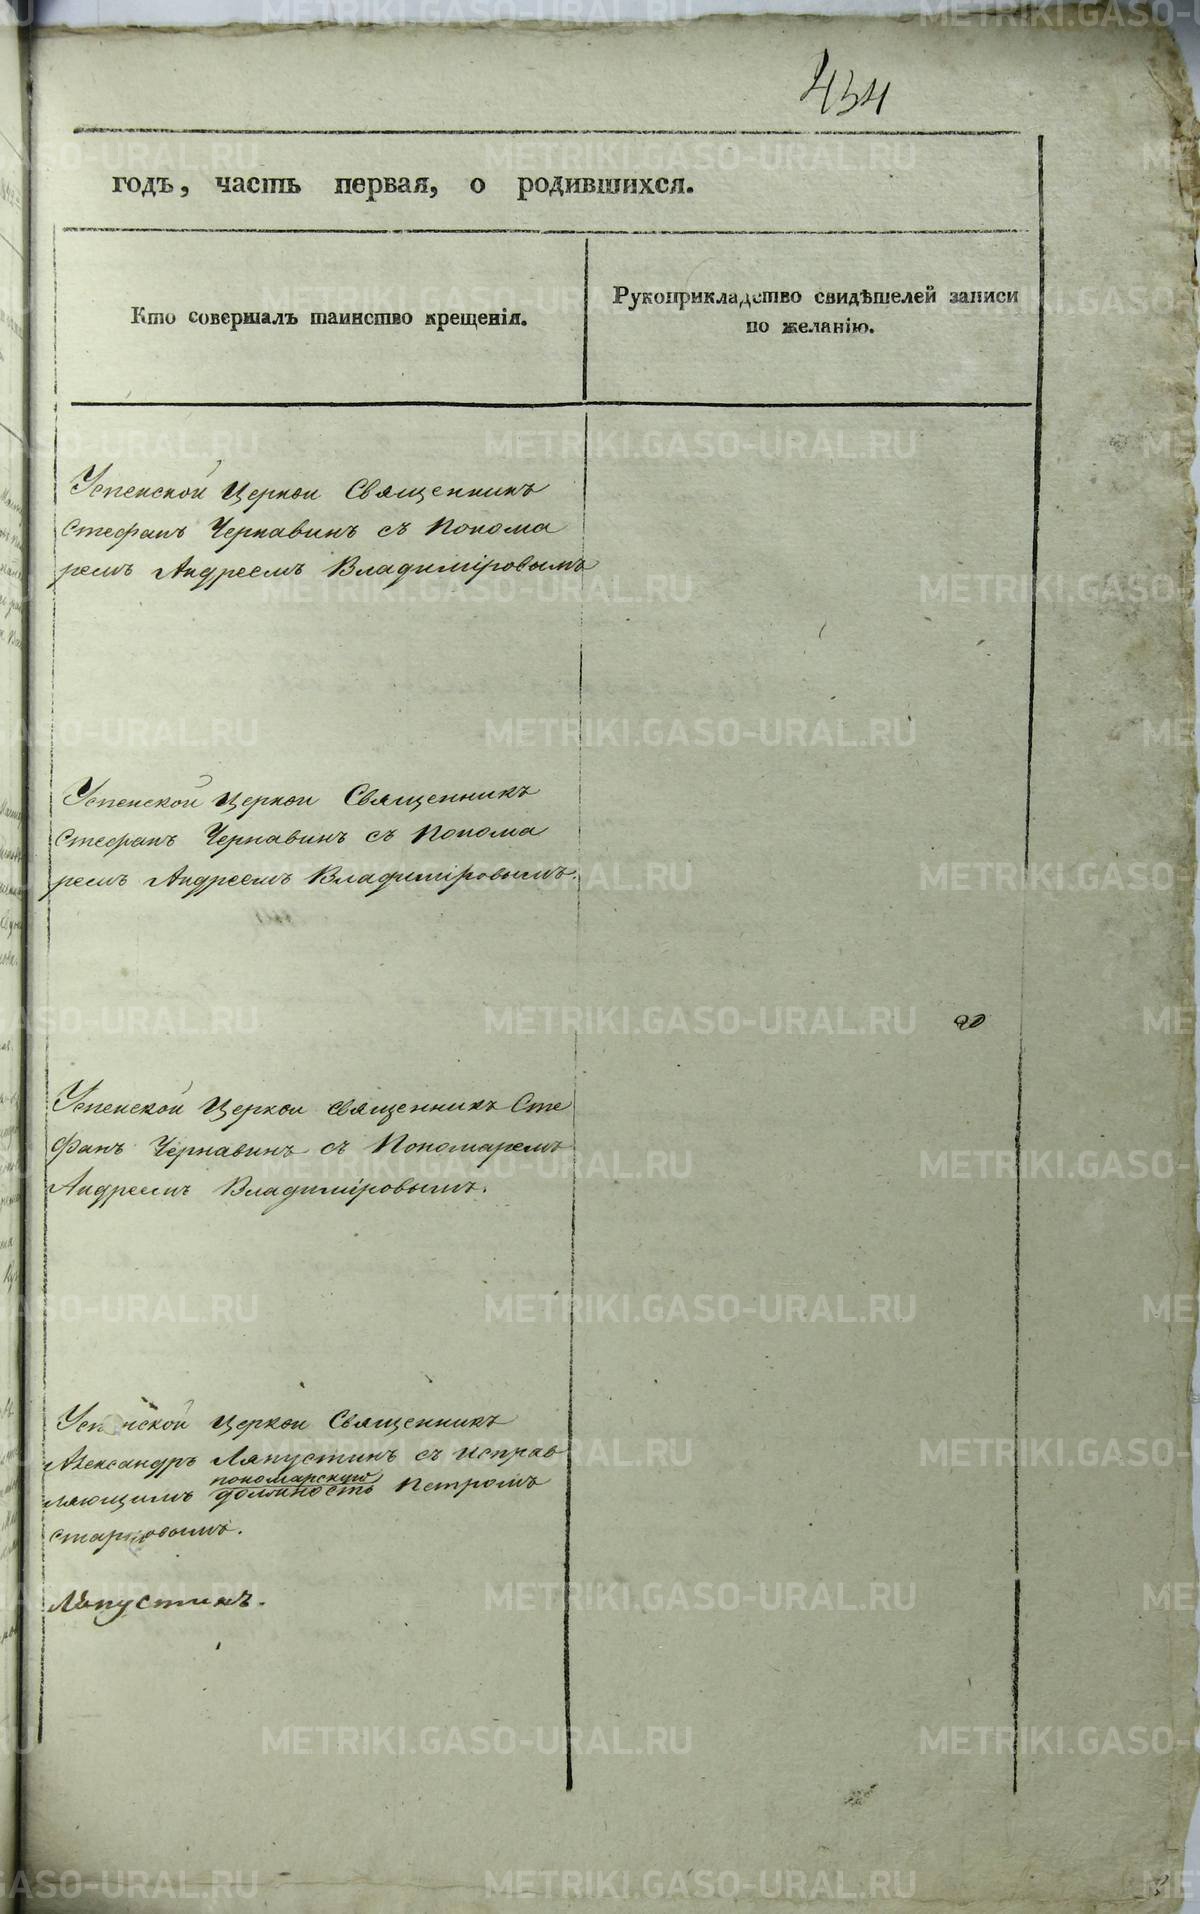 434
годъ, часть первая, о родившихся.
Кто совершалъ таинство крещенія.
Рукоприкладство свидѣтелей записи
по желанію.
Успенской Церкви Священникъ
Стефанъ Чернавинъ съ Понома
ремъ Андреемъ Владиміровымъ
Успенской Церкви Священникъ
Стефанъ Чернавинъ съ Понома
ремъ Андреемъ Владиміровымъ.
Успенской Церкви священникъ Сте
фанъ Чернавинъ съ Пономаремъ
Андреемъ Владиміровымъ.
Успенской Церкви Священникъ
Александръ Ляпустинъ съ исправ
ляющимъ пономарскую должность Петромъ
Старцовымъ.
Ляпустинъ.
METRIKI.GASO-URAL.RU